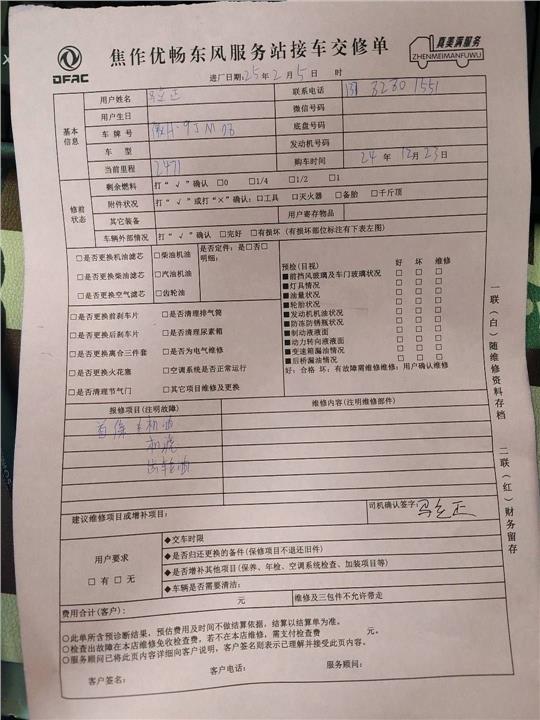 DFAC
焦作优畅东风服务站接车交修单
真美满服务
ZHENMEIMANFUWU
进厂日期:25年2月5日 时
基本信息
用户姓名 马立正 联系电话
用户生日 微信号码
车牌号 底盘号码
车型 发动机号码
当前里程 2471 购车时间 24年12月23日
修前状态
剩余燃料 打“√”确认 □0 □1/4 □1/2 □1
附件状况 打“√”或打“×”确认:□工具 □灭火器 □备胎 □千斤顶
其它装备 用户寄存物品
车辆外部情况 打“√”确认 □完好 □有损坏(有损坏部位标注有下表左图)
□是否更换机油滤芯 □柴油机油
□是否更换柴油滤芯 □汽油机油
□是否更换空气滤芯 □齿轮油
是否定件:是□否□
明细:
□是否更换前刹车片 □是否清理排气筒
□是否更换后刹车片 □是否清理尿素箱
□是否更换离合三件套 □是否为电气维修
□是否更换火花塞 □空调系统是否正常运行
□是否清理节气门 □其它项目维修及更换
预检(目视) 好 坏 维修
■前挡风玻璃及车门玻璃状况 □ □ □
■灯具情况 □ □ □
■油量状况 □ □ □
■轮胎状况 □ □ □
■发动机机油状况 □ □ □
■防冻防锈瓶状况 □ □ □
■制动液液面 □ □ □
■动力转向液液面 □ □ □
■变速箱漏油情况 □ □ □
■后桥漏油情况 □ □ □
好:合格 坏:有故障需维修维修:用户确认维修
报修项目(注明故障) 维修内容(注明维修部件)
首保
机滤
齿轮油
建议维修项目或增补项目:
司机确认签字: 马立正
用户要求
□有 □无
◆交车时限
◆是否归还更换的备件(保修项目不退还旧件)
◆是否增补其他项目(保养、年检、空调系统检查、加装项目等)
◆车辆是否需要清洁:
费用合计(客户): 元 维修及三包件不允许带走
○此单所含预诊断结果,预估费用及时间不做结算依据,结算以结算单为准。
○检查出故障在本店维修免收检查费,若不在本店维修,需支付检查费 元。
○服务顾问已将此页内容详细向客户说明,客户签名则表示已理解并接受此页内容。
客户签名: 客户电话: 服务顾问:
一联(白)随维修资料存档
二联(红)财务留存